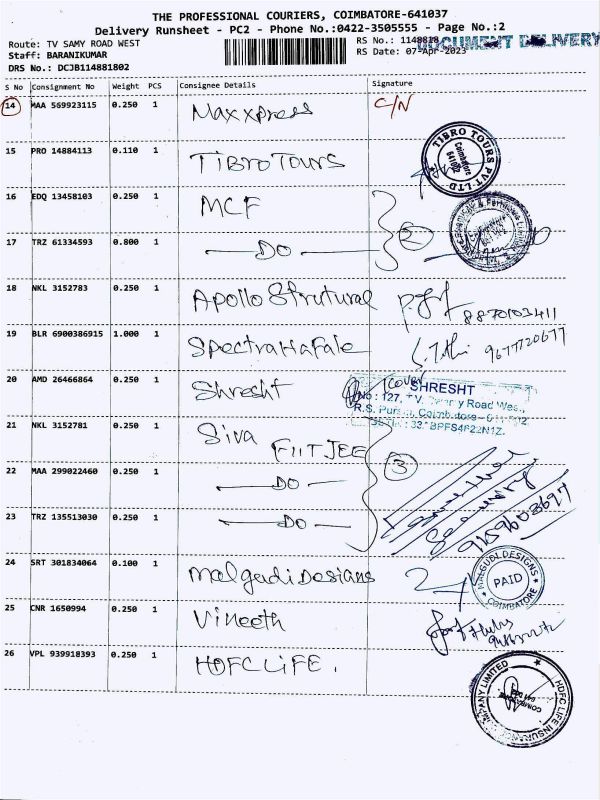 THE PROFESSIONAL COURIERS, COIMBATORE-641037
Delivery Runsheet - PC2 - Phone No.:0422-3505555 - Page No.:2
Route: TV SAMY ROAD WEST
RS No.:
DOCUMENT DELIVERY
Staff: BARANIKUMAR
RS Date: 07-Apr-2023
DRS No.: DCJB114881802
S No Consignment No Weight PCS Consignee Details Signature
14 MAA 569923115 0.250 1 Maxxpress C/N
15 PRO 14884113 0.110 1 TIBRO TOURS
TIBRO TOURS PVT-LTD
Coimbatore
641002
16 EDQ 13458103 0.250 1 MCF
17 TRZ 61334593 0.800 1 DO 2
18 NKL 3152783 0.250 1 Apollo Strutural
8870103411
19 BLR 6900386915 1.000 1 Spectra Hafale
9677720677
20 AMD 26466864 0.250 1 Shresht
cover
SHRESHT
No : 127, T.V. Road West,
R.S. Coimbatore
21 NKL 3152781 0.250 1 Siva FIITJEE
22 MAA 299022460 0.250 1 DO 3
23 TRZ 135513030 0.250 1 DO
Security
24 SRT 301834064 0.100 1 Malgudi Designs
MALGUDI DESIGNS
PAID
COIMBATORE
25 CNR 1650994 0.250 1 Vineeth
26 VPL 939918393 0.250 1 HDFC LIFE.
HDFC LIFE INSURANCE COMPANY LIMITED